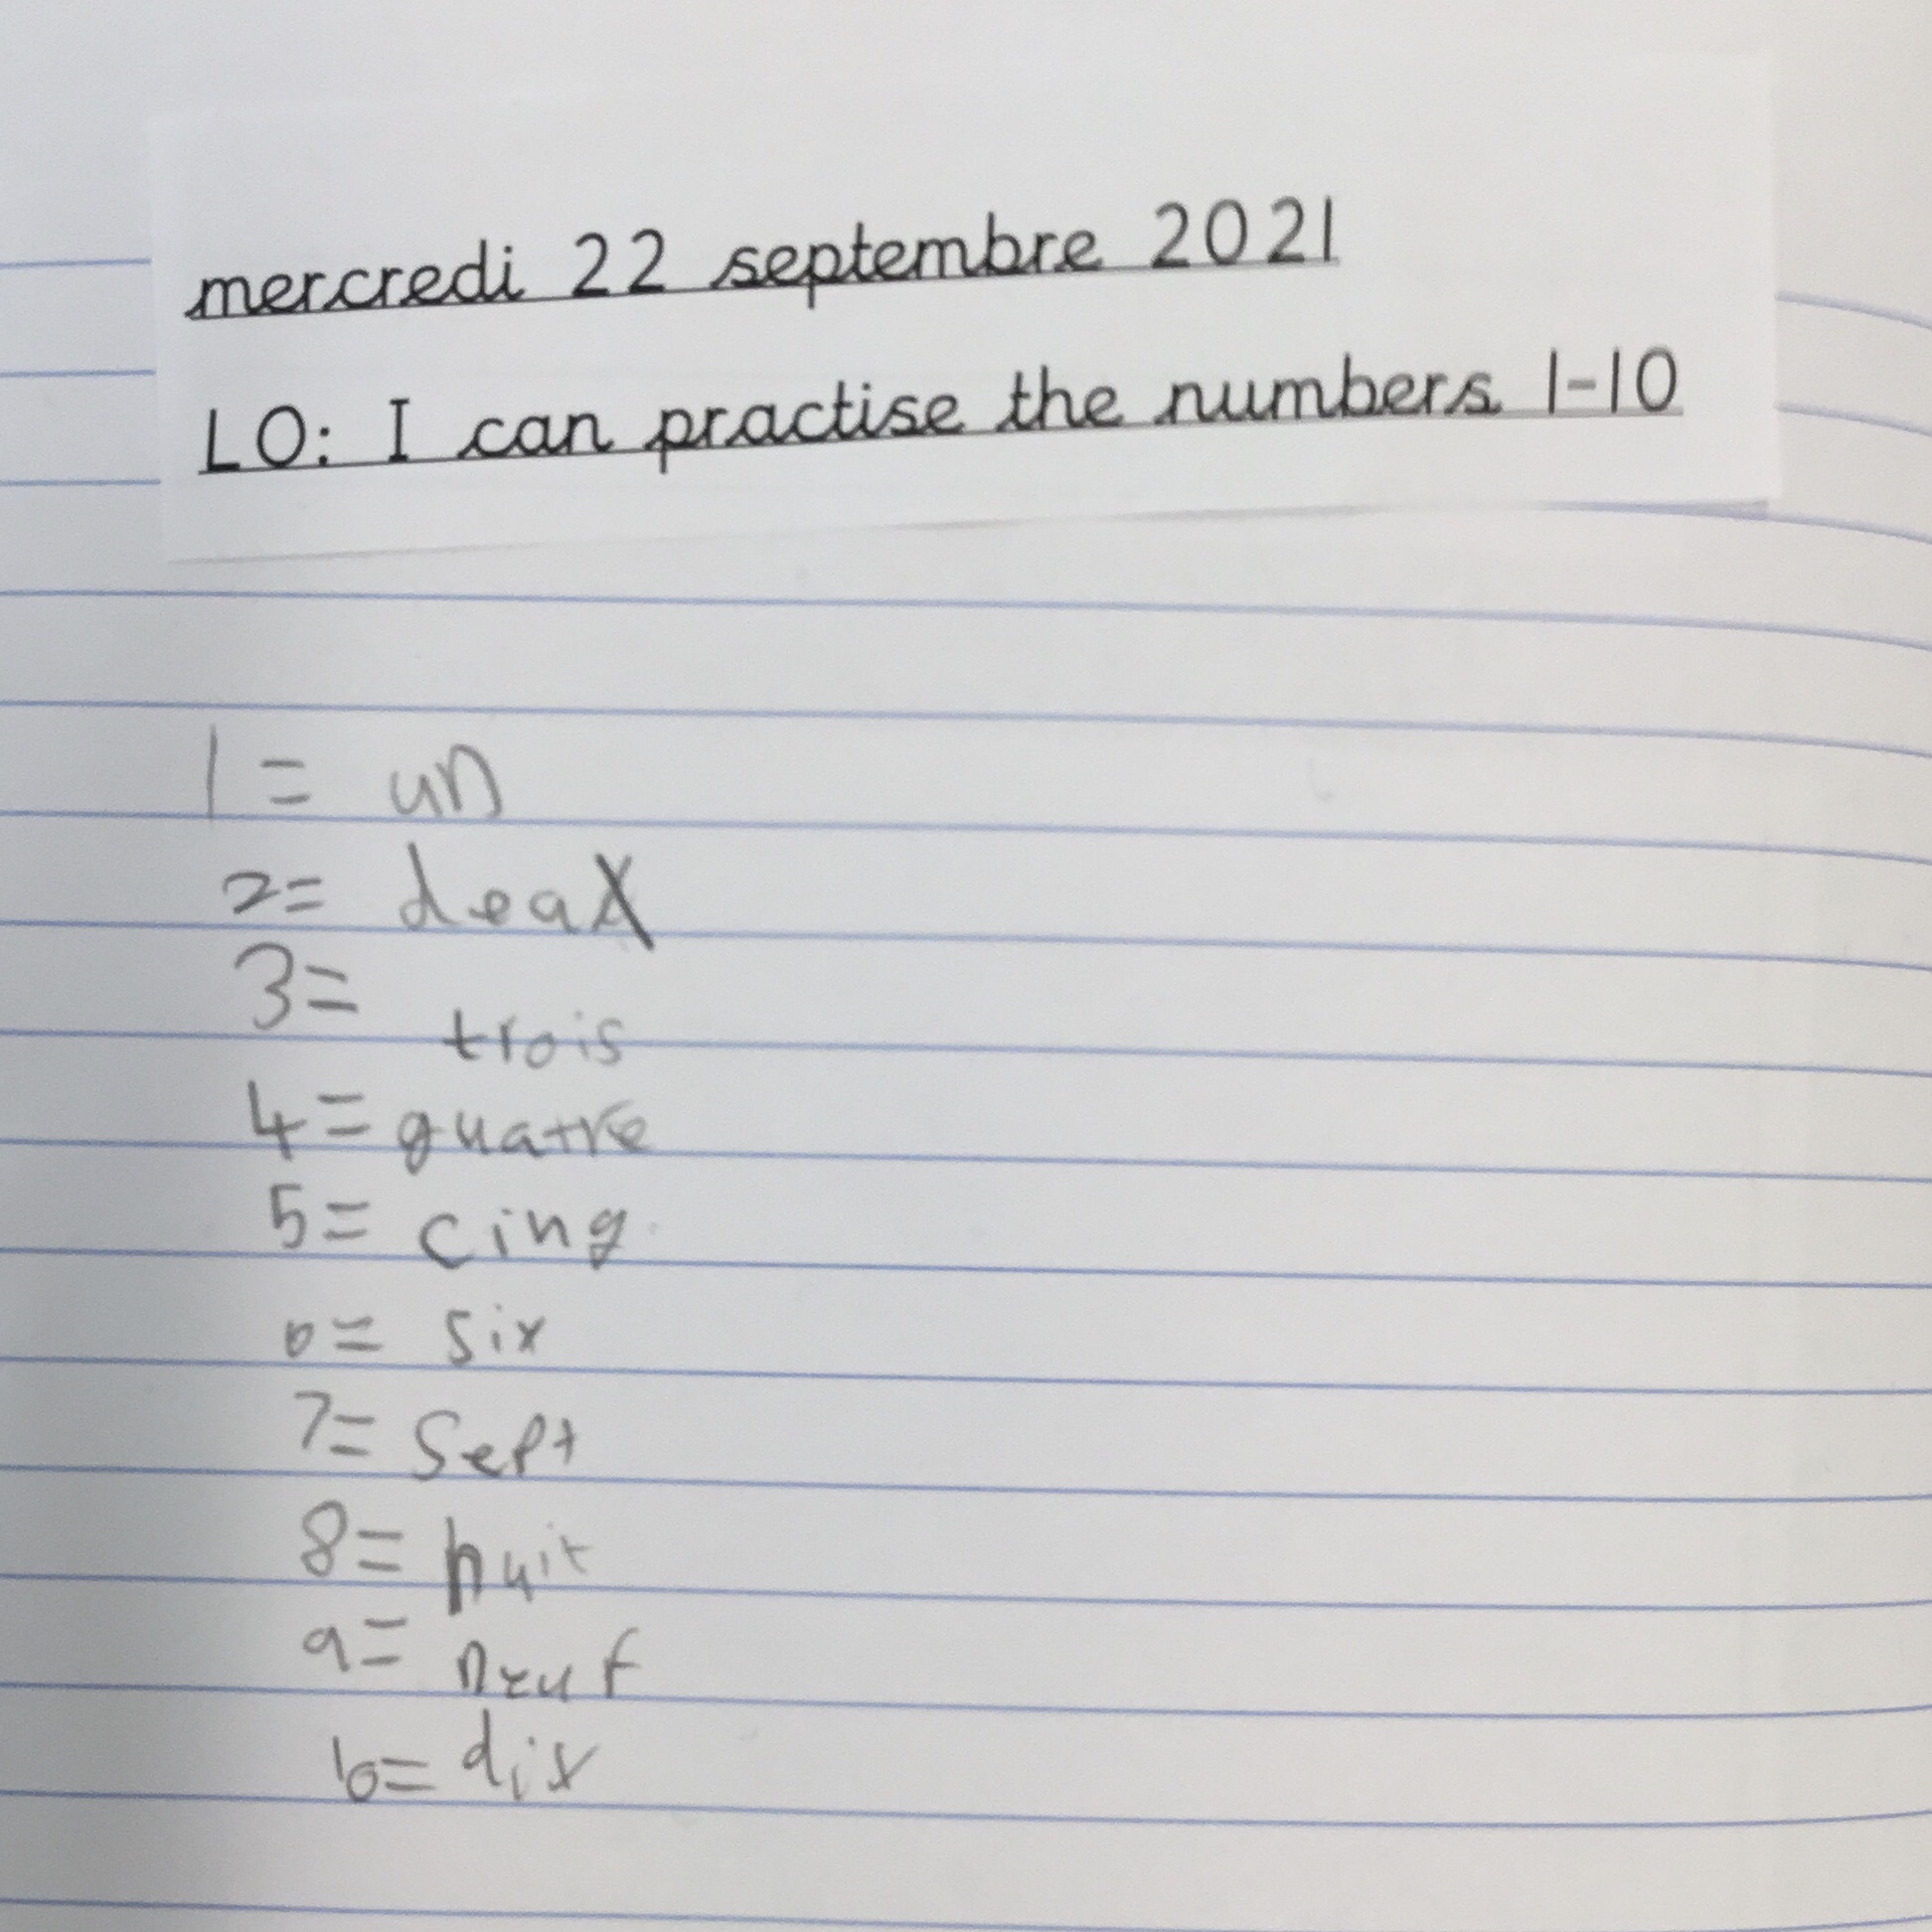 mercredi 22 septembre 2021
LO: I can practise the numbers 1-10
1 = un
2= deax
3= trois
4= guatre
5= cing
6= six
7= Sept
8= huit
9= neuf
10= dix